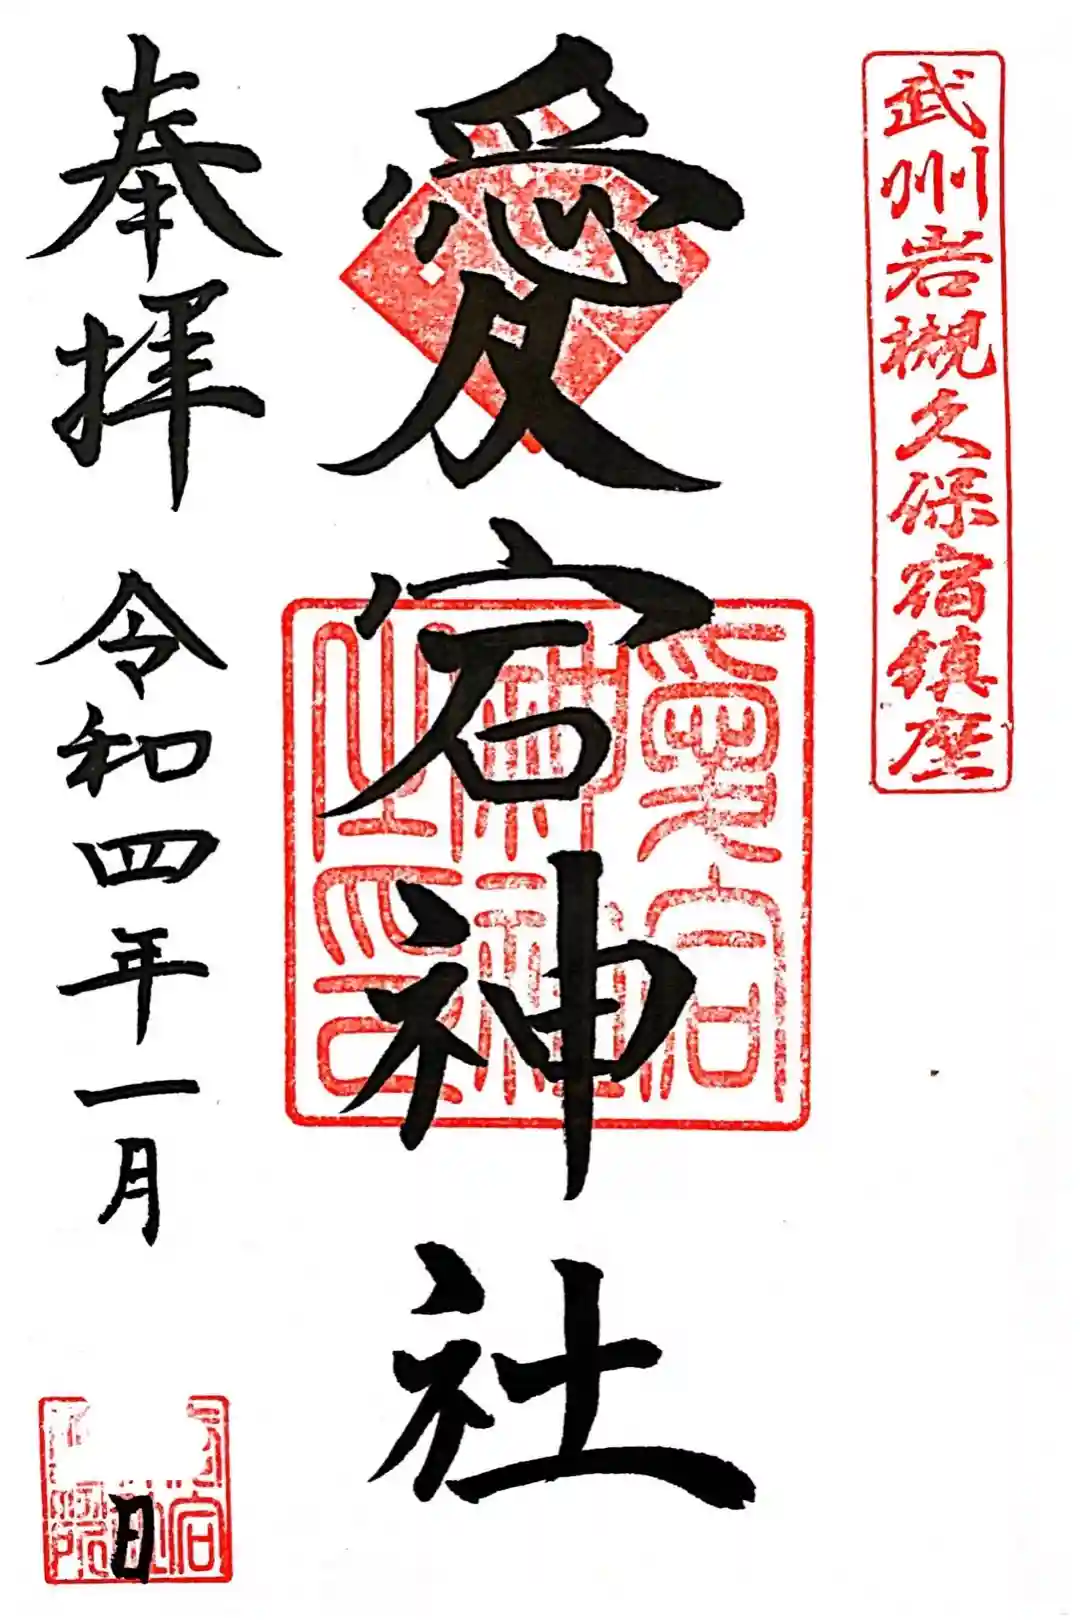 武州岩槻久保宿鎮座
愛宕神社
愛宕
神社
之印
奉拝 令和四年一月
日